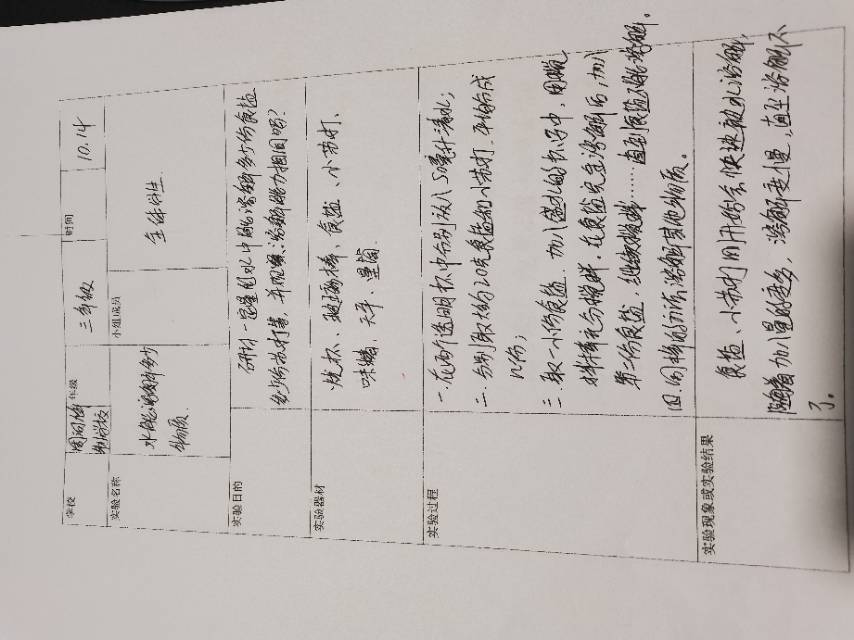 学校
年级
三年级
时间
10.14
实验名称
水能溶解多少
物质
小组成员
全体学生
实验目的
研讨一定量的水中能溶解多少份食盐
多少份苏打等,
溶解能力相同吗?
实验器材
烧杯、玻璃棒、食盐、小苏打、
天平、量筒.
实验过程
一.在两个透明杯中分别放入50毫升清水;
二.分别取20克食盐和小苏打,平均分成
几份;
三.取一小份食盐,加入盛水的杯子中,用玻璃
棒充分搅拌,在食盐完全溶解后,加入
第二份食盐,继续搅拌……直到食盐不能溶解。
四.同样的方法溶解其他物质。
实验现象或实验结果
食盐、小苏打刚开始会快速被水溶解,
随着加入量的变多,溶解变慢,直至溶解不
了。